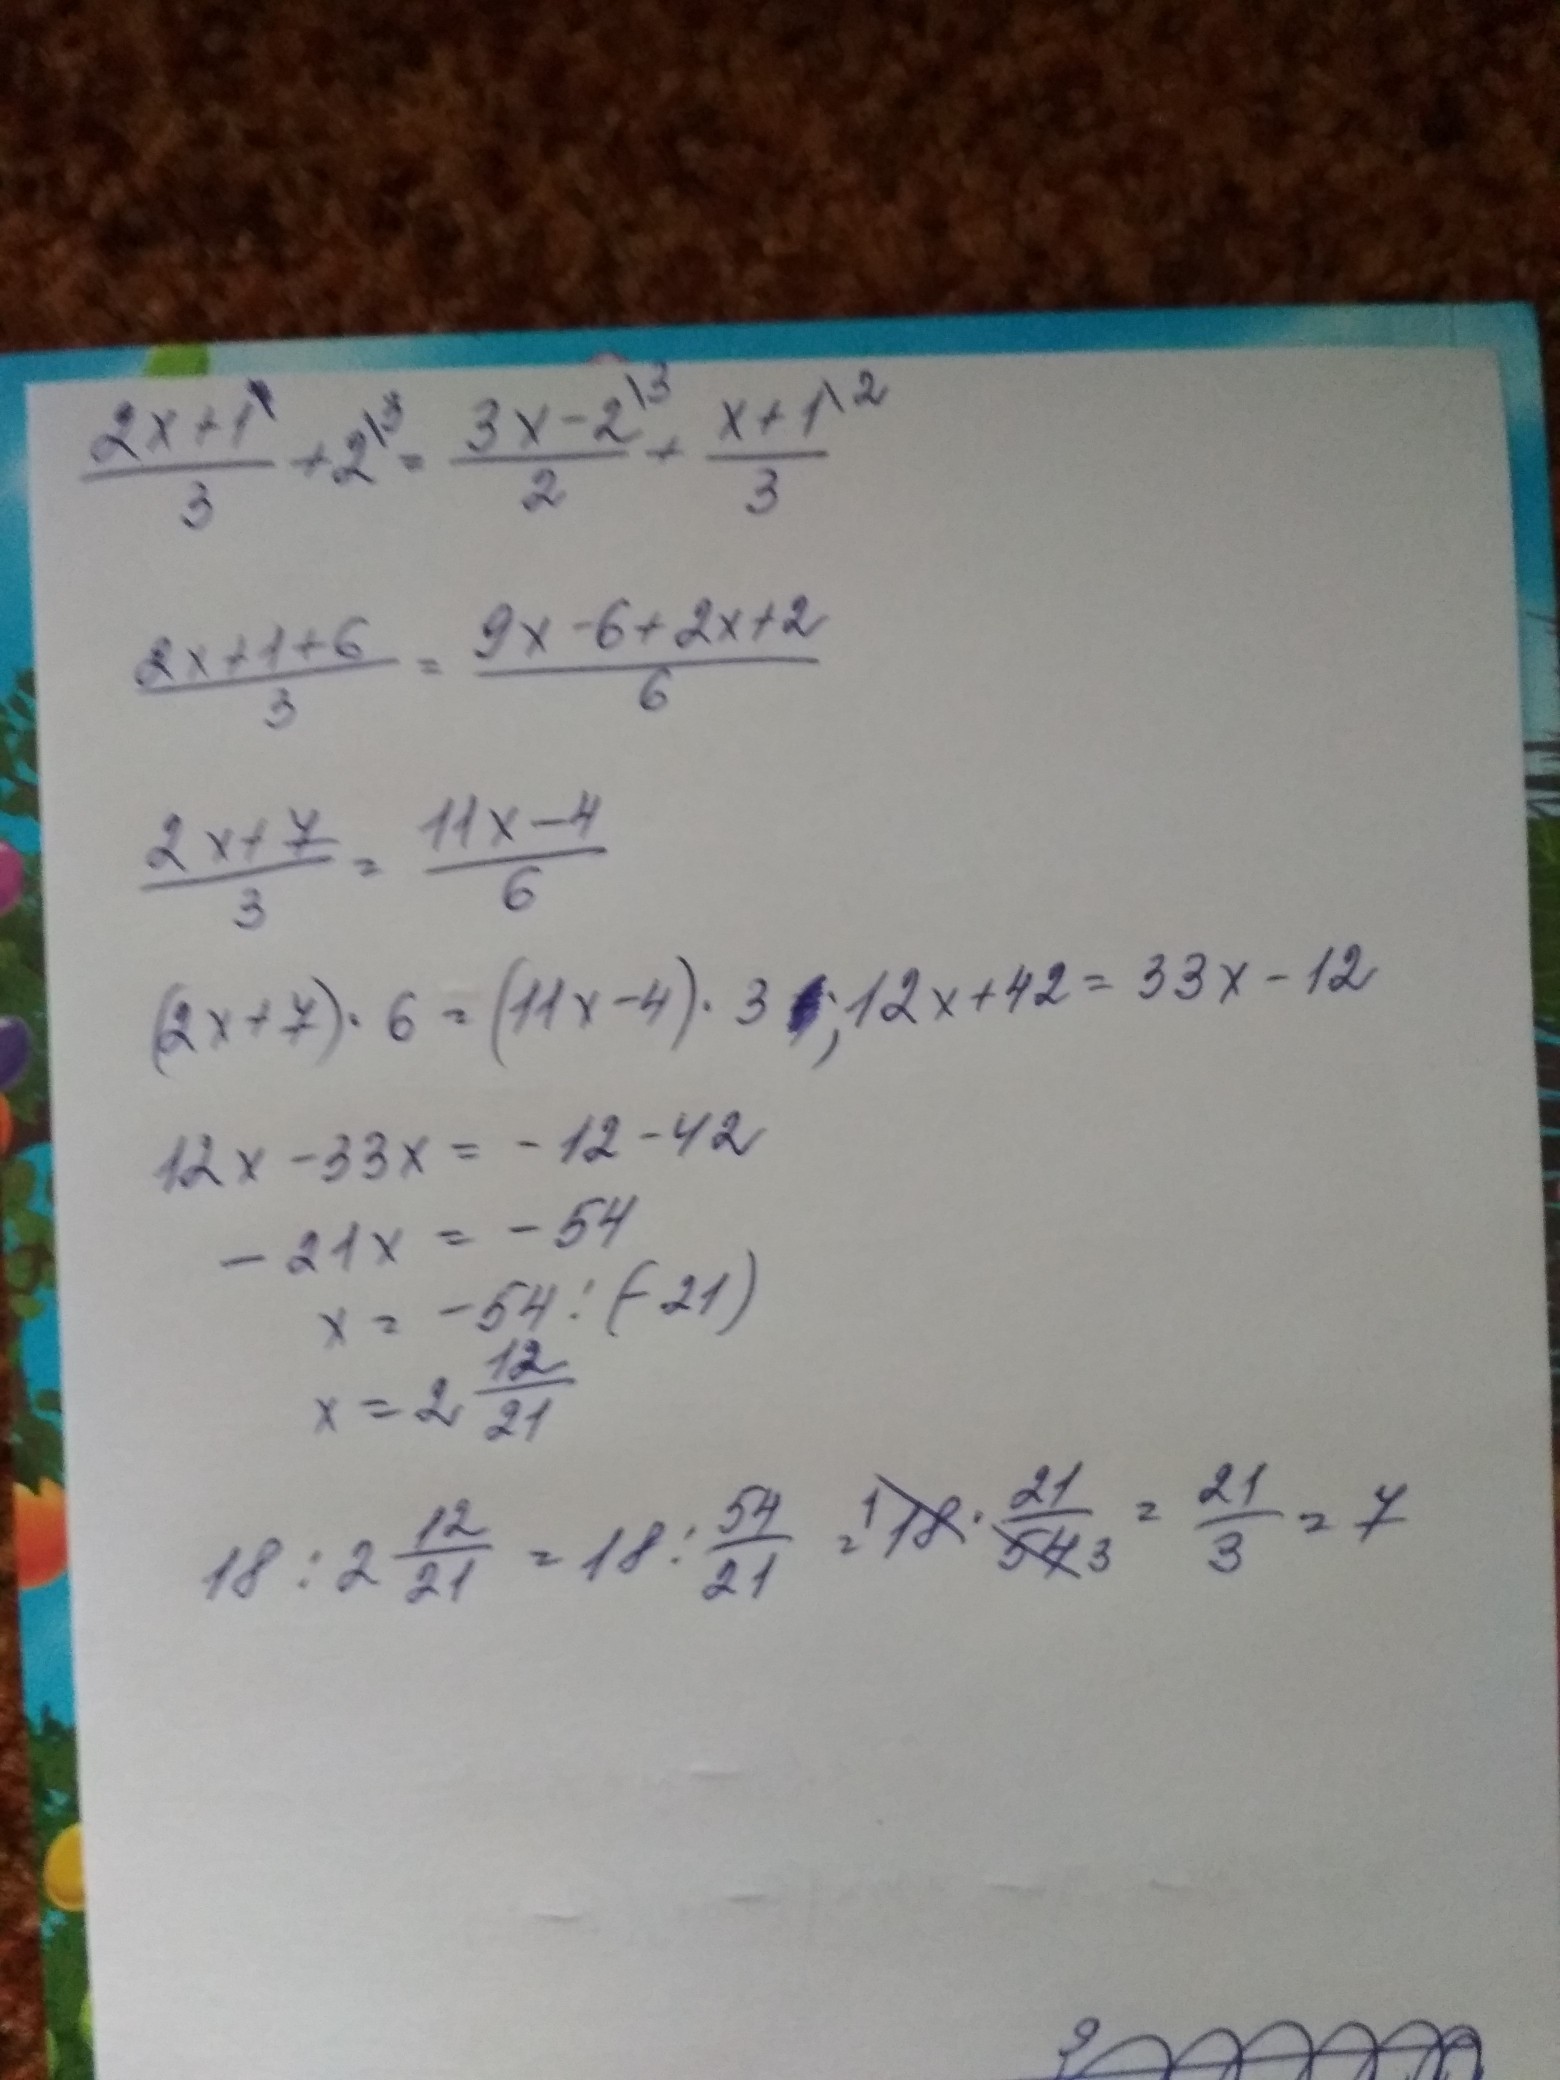 (2x+1)/3 + 2\3 = (3x-2\3)/2 + (x+1\2)/3
(2x+1+6)/3 = (9x-6+2x+2)/6
(2x+7)/3 = (11x-4)/6
(2x+7)·6=(11x-4)·3; 12x+42=33x-12
12x-33x=-12-42
-21x=-54
x=-54:(-21)
x=2 12/21
18:2 12/21 = 18: 54/21 = 1 18· 21/54 3 = 21/3 = 7